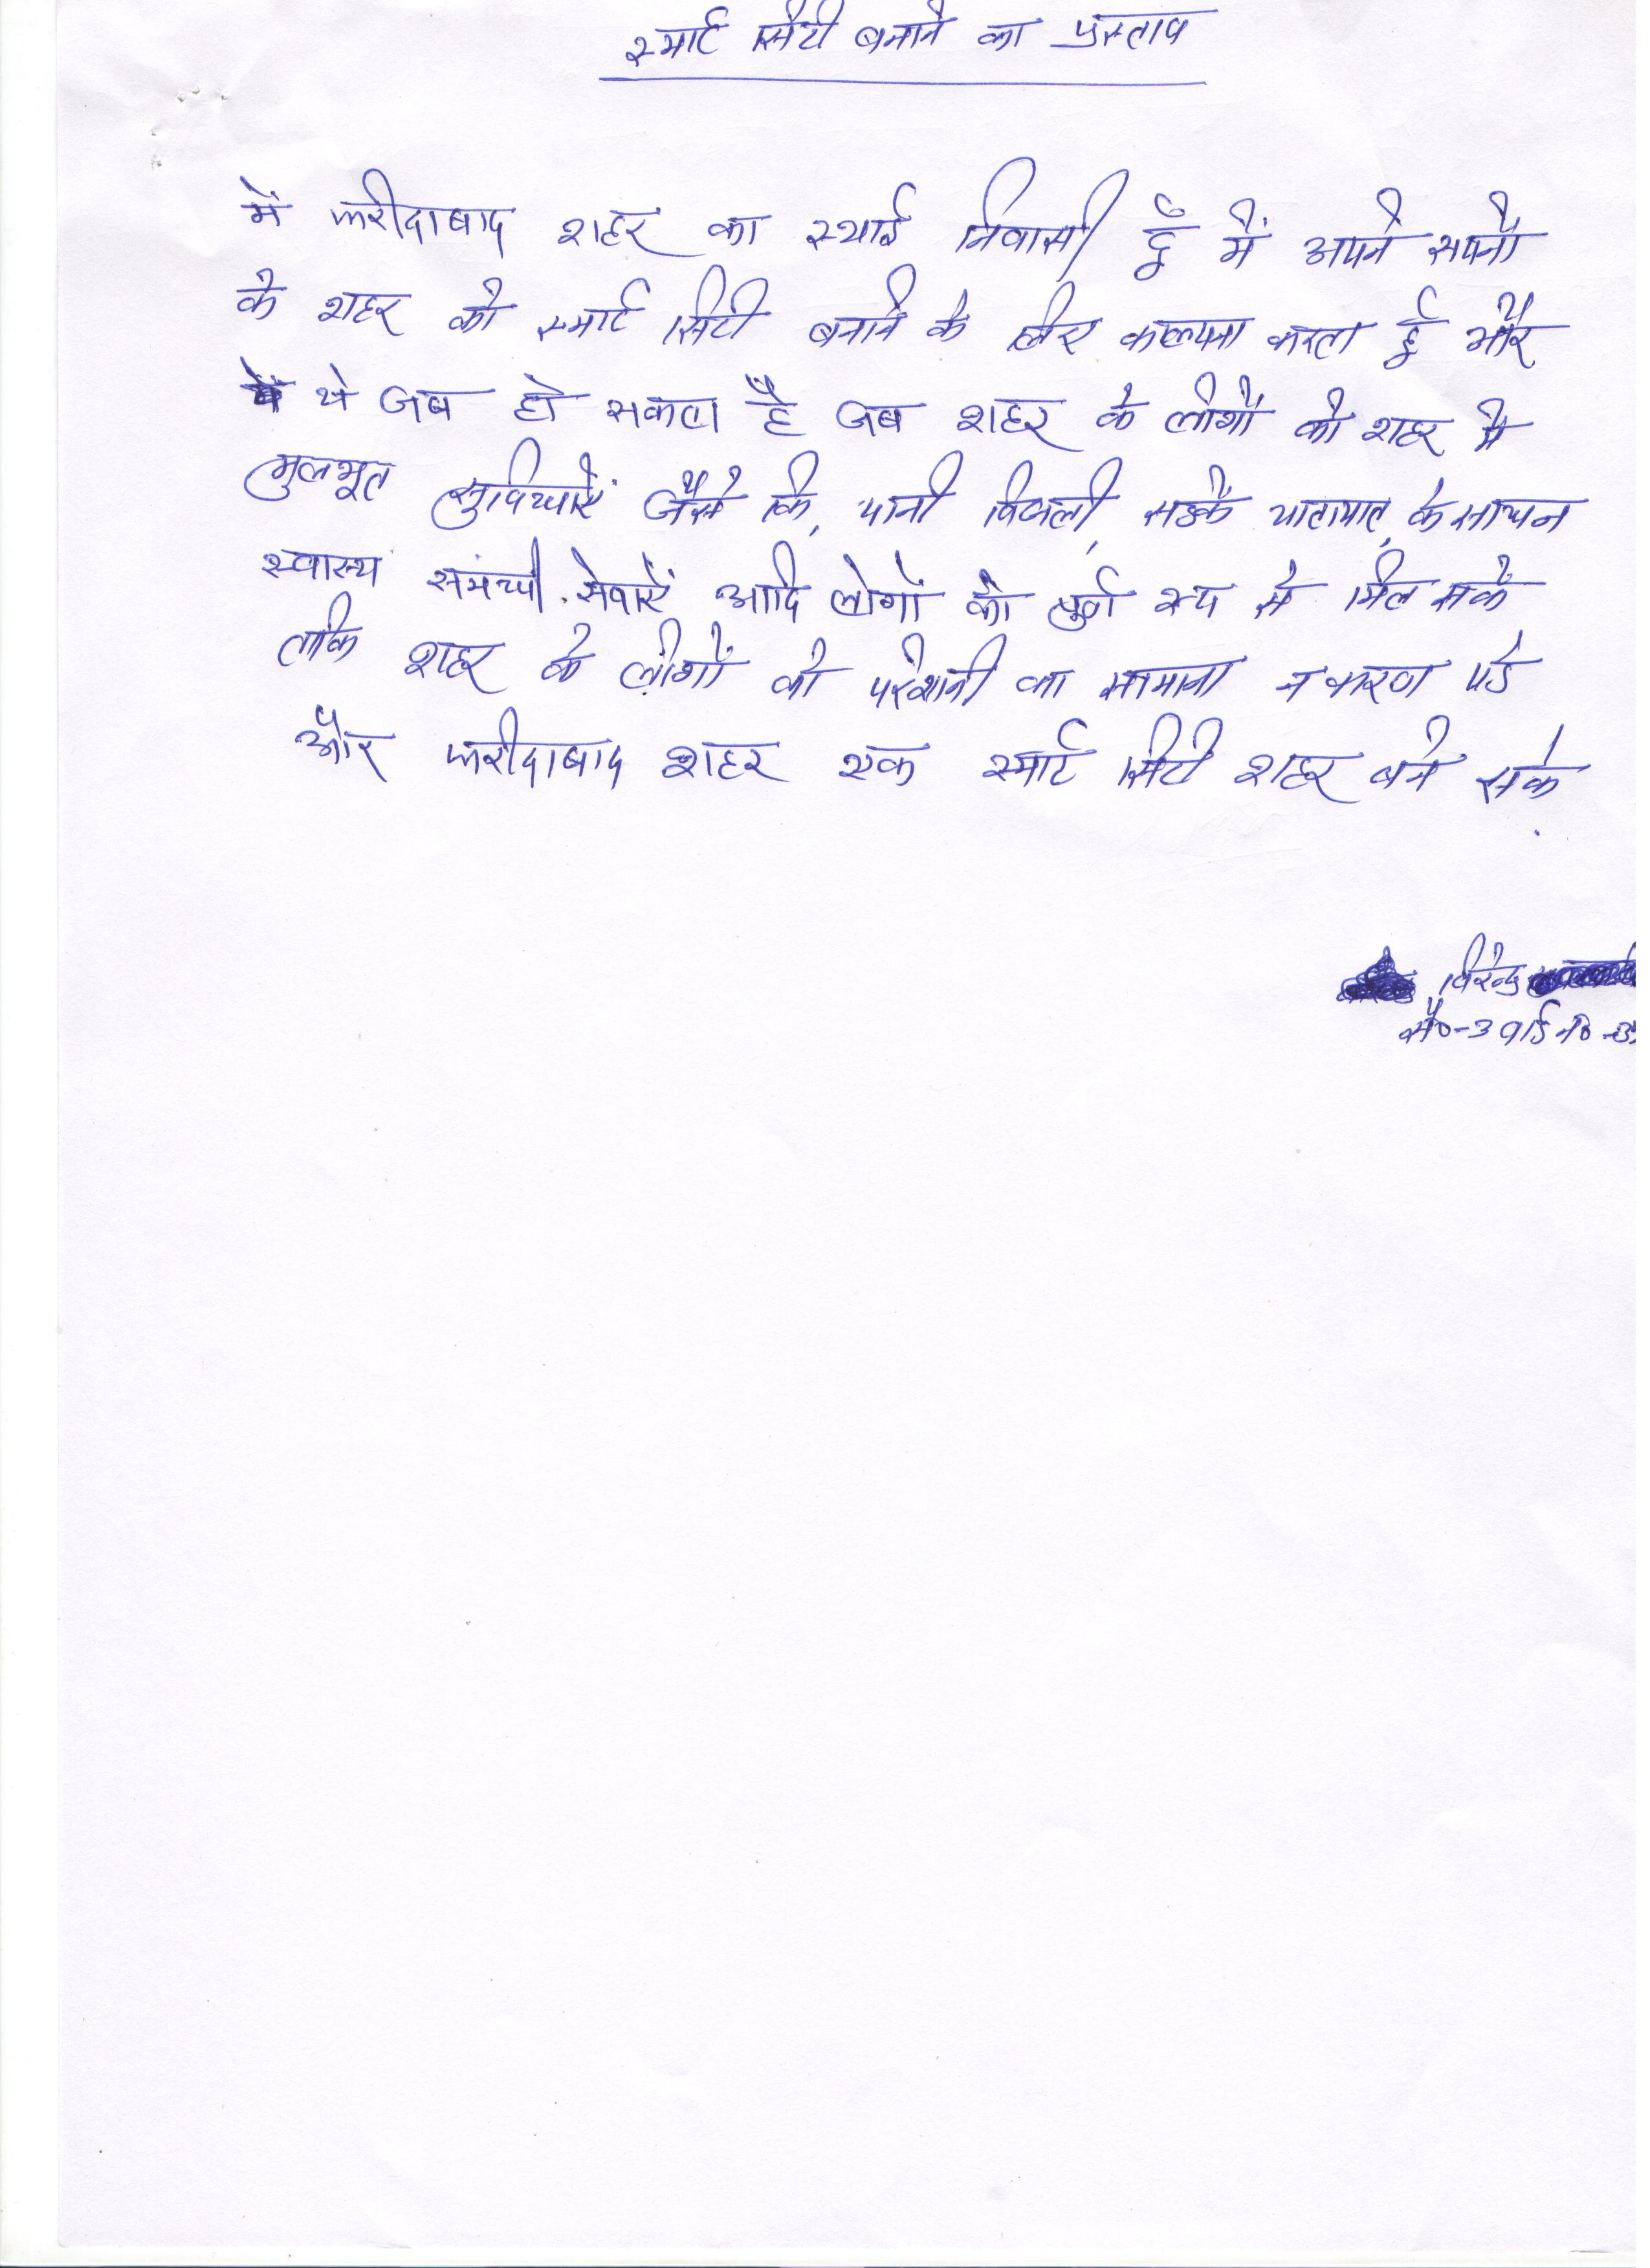 स्मार्ट सिटी बनाने का प्रस्ताव
में फरीदाबाद शहर का स्थाई निवासी हूँ में अपने सपनो
के शहर को स्मार्ट सिटी बनाने के लिए कल्पना करता हूँ और
ये जब हो सकता है जब शहर के लोगों को शहर में
मुलभूत सुविधाऐं जैसे कि, पानी बिजली, सडकें यातायात, के साधन
स्वास्थ समंधी सेवाऐं आदि लोगों को पूर्ण रूप से मिल सकें
ताकि शहर के लोगों को परेशानी का सामाना न करना पडे
और फरीदाबाद शहर एक स्मार्ट सिटी शहर बन सके
विरेन्द्र
सै०-3 वार्ड न०